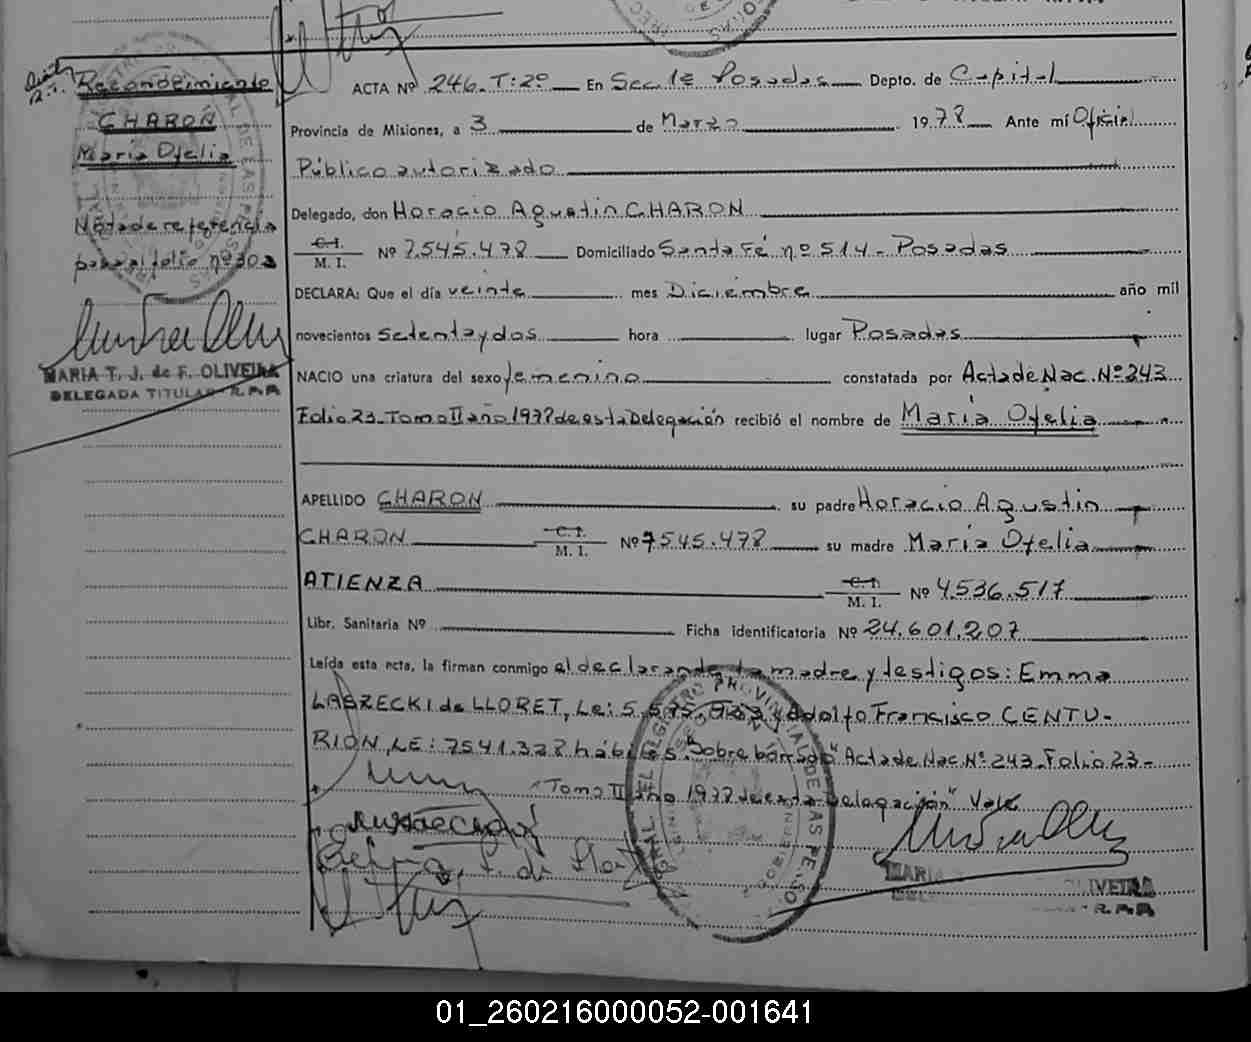 Reconocimiento
CHARON
Maria Ofelia
Nota de referencia
pasa al folio nº 303
MARIA T. J. de F. OLIVEIRA
DELEGADA TITULAR - R.P.P.
ACTA Nº 246. T: 2º En Sec. 1ª Posadas Depto. de Capital
Provincia de Misiones, a 3 de Marzo 1978 Ante mí Oficial
Público autorizado
Delegado, don Horacio Agustin CHARON
C. I. M. I. Nº 7.545.478 Domiciliado Santa Fé nº 514 - Posadas
DECLARA: Que el día veinte mes Diciembre año mil
novecientos setenta y dos hora lugar Posadas
NACIO una criatura del sexo femenino constatada por Acta de Nac. Nº 243
Folio 23 Tomo II año 1978 de esta Delegación recibió el nombre de María Ofelia
APELLIDO CHARON su padre Horacio Agustin
CHARON C. I. M. I. Nº 7545.478 su madre María Ofelia
ATIENZA C. I. M. I. Nº 4.536.517
Libr. Sanitaria Nº Ficha identificatoria Nº 24.601.207
Leída esta acta, la firman conmigo el declarante, la madre y testigos: Emma
LASZECKI de LLORET, Le: 5.575. y Adolfo Francisco CENTU-
RION, LE: 7541.328 hábiles. "Sobre borrado" Acta de Nac. Nº 243 Folio 23-
Tomo II año 1978 de esta Delegación" Vale
MARIA OLIVEIRA
R.P.P.
01_260216000052-001641